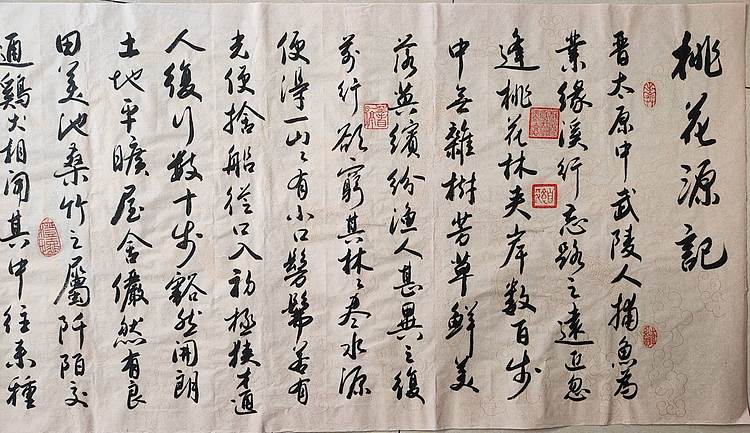 桃花源記
晉太原中武陵人捕魚為
業緣溪行忘路之遠近忽
逢桃花林夹岸数百步
中無雜樹芳草鮮美
落英繽紛漁人甚異之復
前行欲窮其林林尽水源
便得一山山有小口髣髴若有
光便捨船從口入初極狹才通
人復行数十步豁然開朗
土地平曠屋舍儼然有良
田美池桑竹之屬阡陌交
通鷄犬相聞其中往来種